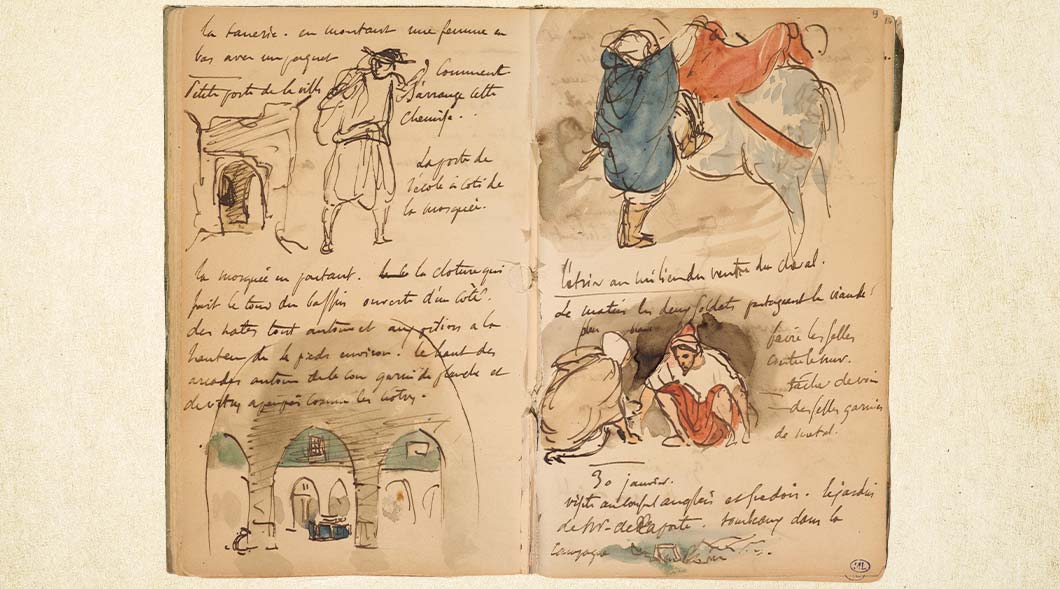 la tanerie. en montant une femme en
bas avec un paquet
Petite porte de la ville
Comment
s'arrange cette
chemise...
La porte de
l'école à coté de
la mosquée.
la mosquée en partant. la cloture qui
fait le tour du bassin ouverte d'un côté.
des nates tout autour et aux pitiers a la
hauteur de pieds environ. le haut des
arcades autour de la cour garni de planche et
de vitres comme les nôtres.
9
l'étrier au milieu du ventre du cheval.
Le matin les deux soldats partageant la viande
faire les selles
contre le mur.
tâcher de voir
des selles garnies
de metal.
30 janvier.
visite au consul anglais et suedois. le jardin
de Mr de Laporte. tombeau dans la
campagne
ML